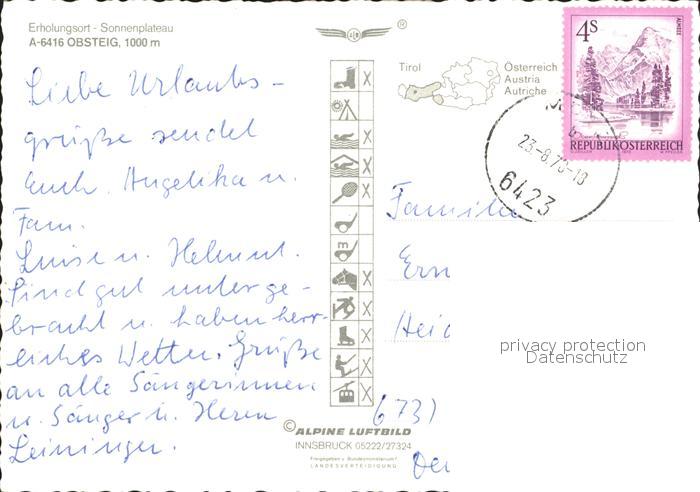 Erholungsort - Sonnenplateau
A-6416 OBSTEIG, 1000 m
Liebe Urlaubs-
grüße sendet
Euch Angelika u.
Fam.
Luise u. Helmut.
Sind gut unterge-
bracht u. haben herr-
liches Wetter. Grüße
an alle Sängerinnen
u. Sänger u. Herrn
Leininger.
®
Tirol
Österreich
Austria
Autriche
4S
ALMSEE
REPUBLIK ÖSTERREICH
23-8.76-18
6423
Familie
Ern
Heid
privacy protection
Datenschutz
6731
© ALPINE LUFTBILD
INNSBRUCK 05222/27324
Freigegeben v. Bundesministerium f.
LANDESVERTEIDIGUNG